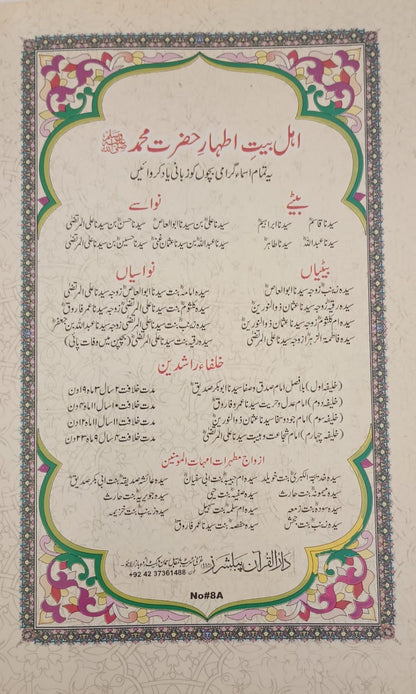 اہل بیتِ اطہارِ حضرت محمد ﷺ
یہ تمام اسماء گرامی بچوں کو زبانی یاد کروائیں
بیٹے
سیدنا قاسمؓ سیدنا ابراہیمؓ
سیدنا عبداللہؓ سیدنا طاہرؓ
نواسے
سیدنا علیؓ بن سیدنا ابوالعاصؓ سیدنا حسنؓ بن سیدنا علی المرتضیٰؓ
سیدنا عبداللہؓ بن سیدنا عثمان غنیؓ سیدنا حسینؓ بن سیدنا علی المرتضیٰؓ
بیٹیاں
سیدہ زینبؓ زوجہ سیدنا ابوالعاصؓ
سیدہ رقیہؓ زوجہ سیدنا عثمان ذوالنورینؓ
سیدہ ام کلثومؓ زوجہ سیدنا عثمان ذوالنورینؓ
سیدہ فاطمۃ الزہراؓ زوجہ سیدنا علی المرتضیٰؓ
نواسیاں
سیدہ امامہؓ بنت سیدنا ابوالعاصؓ زوجہ سیدنا علی المرتضیٰؓ
سیدہ ام کلثومؓ بنت سیدنا علی المرتضیٰؓ زوجہ سیدنا عمر فاروقؓ
سیدہ زینبؓ بنت سیدنا علی المرتضیٰؓ زوجہ سیدنا عبداللہ بن جعفرؓ
سیدہ رقیہؓ بنت سیدنا علی المرتضیٰؓ (بچپن میں وفات پائی)
خلفاء راشدین
(خلیفہ اول) بافصل امام صدق و صفا سیدنا ابوبکر صدیقؓ مدت خلافت ۲ سال ۳ ماہ ۱۹ دن
(خلیفہ دوم) امام عدل و حریت سیدنا عمر فاروقؓ مدت خلافت ۱۰ سال
(خلیفہ سوم) امام جود و سخا سیدنا عثمان ذوالنورینؓ مدت خلافت ۱۱ سال ۱۱ ماہ
(خلیفہ چہارم) امام شجاعت و ہیبت سیدنا علی المرتضیٰؓ مدت خلافت ۴ سال ۹ ماہ
ازواج مطہرات امہات المؤمنین
سیدہ خدیجۃ الکبریٰؓ بنت خویلد سیدہ ام حبیبہؓ بنت ابی سفیانؓ سیدہ عائشہ صدیقہؓ بنت ابی بکر صدیقؓ
سیدہ میمونہؓ بنت حارث سیدہ صفیہؓ بنت حیی سیدہ جویریہؓ بنت حارث
سیدہ سودہؓ بنت زمعہ سیدہ ام سلمہؓ بنت سہیل سیدہ زینبؓ بنت خزیمہ
سیدہ زینبؓ بنت جحش سیدہ حفصہؓ بنت سیدنا عمر فاروقؓ
دار القرآن پبلیشرز
+92 42 37361488
No#8A